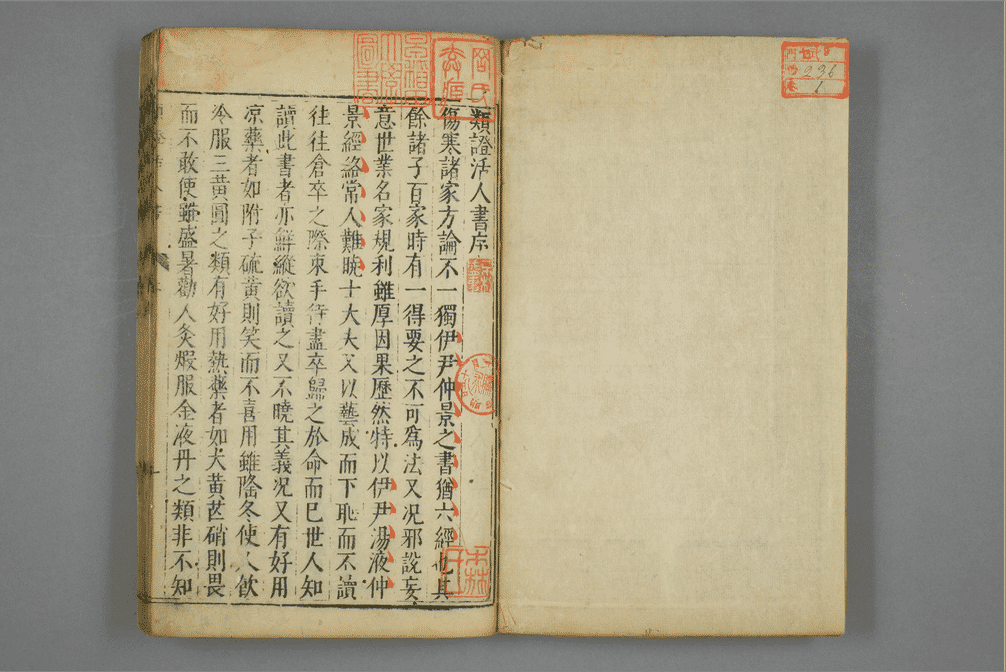 類證活人書序
傷寒諸家方論不一獨伊尹仲景之書猶六經也其
餘諸子百家時有一得要之不可爲法又况邪說妄
意世業名家規利雖厚因果歷然特以伊尹湯液仲
景經絡常人難曉士大夫又以藝成而下恥而不讀
往往倉卒之際束手待盡卒歸之於命而已世人知
讀此書者亦鮮縱欲讀之又不曉其義况又有好用
凉藥者如附子硫黃則笑而不喜用雖隆冬使人飲
冷服三黃圓之類有好用熱藥者如大黃芒硝則畏
而不敢使雖盛暑勸人灸煆服金液丹之類非不知
236
1